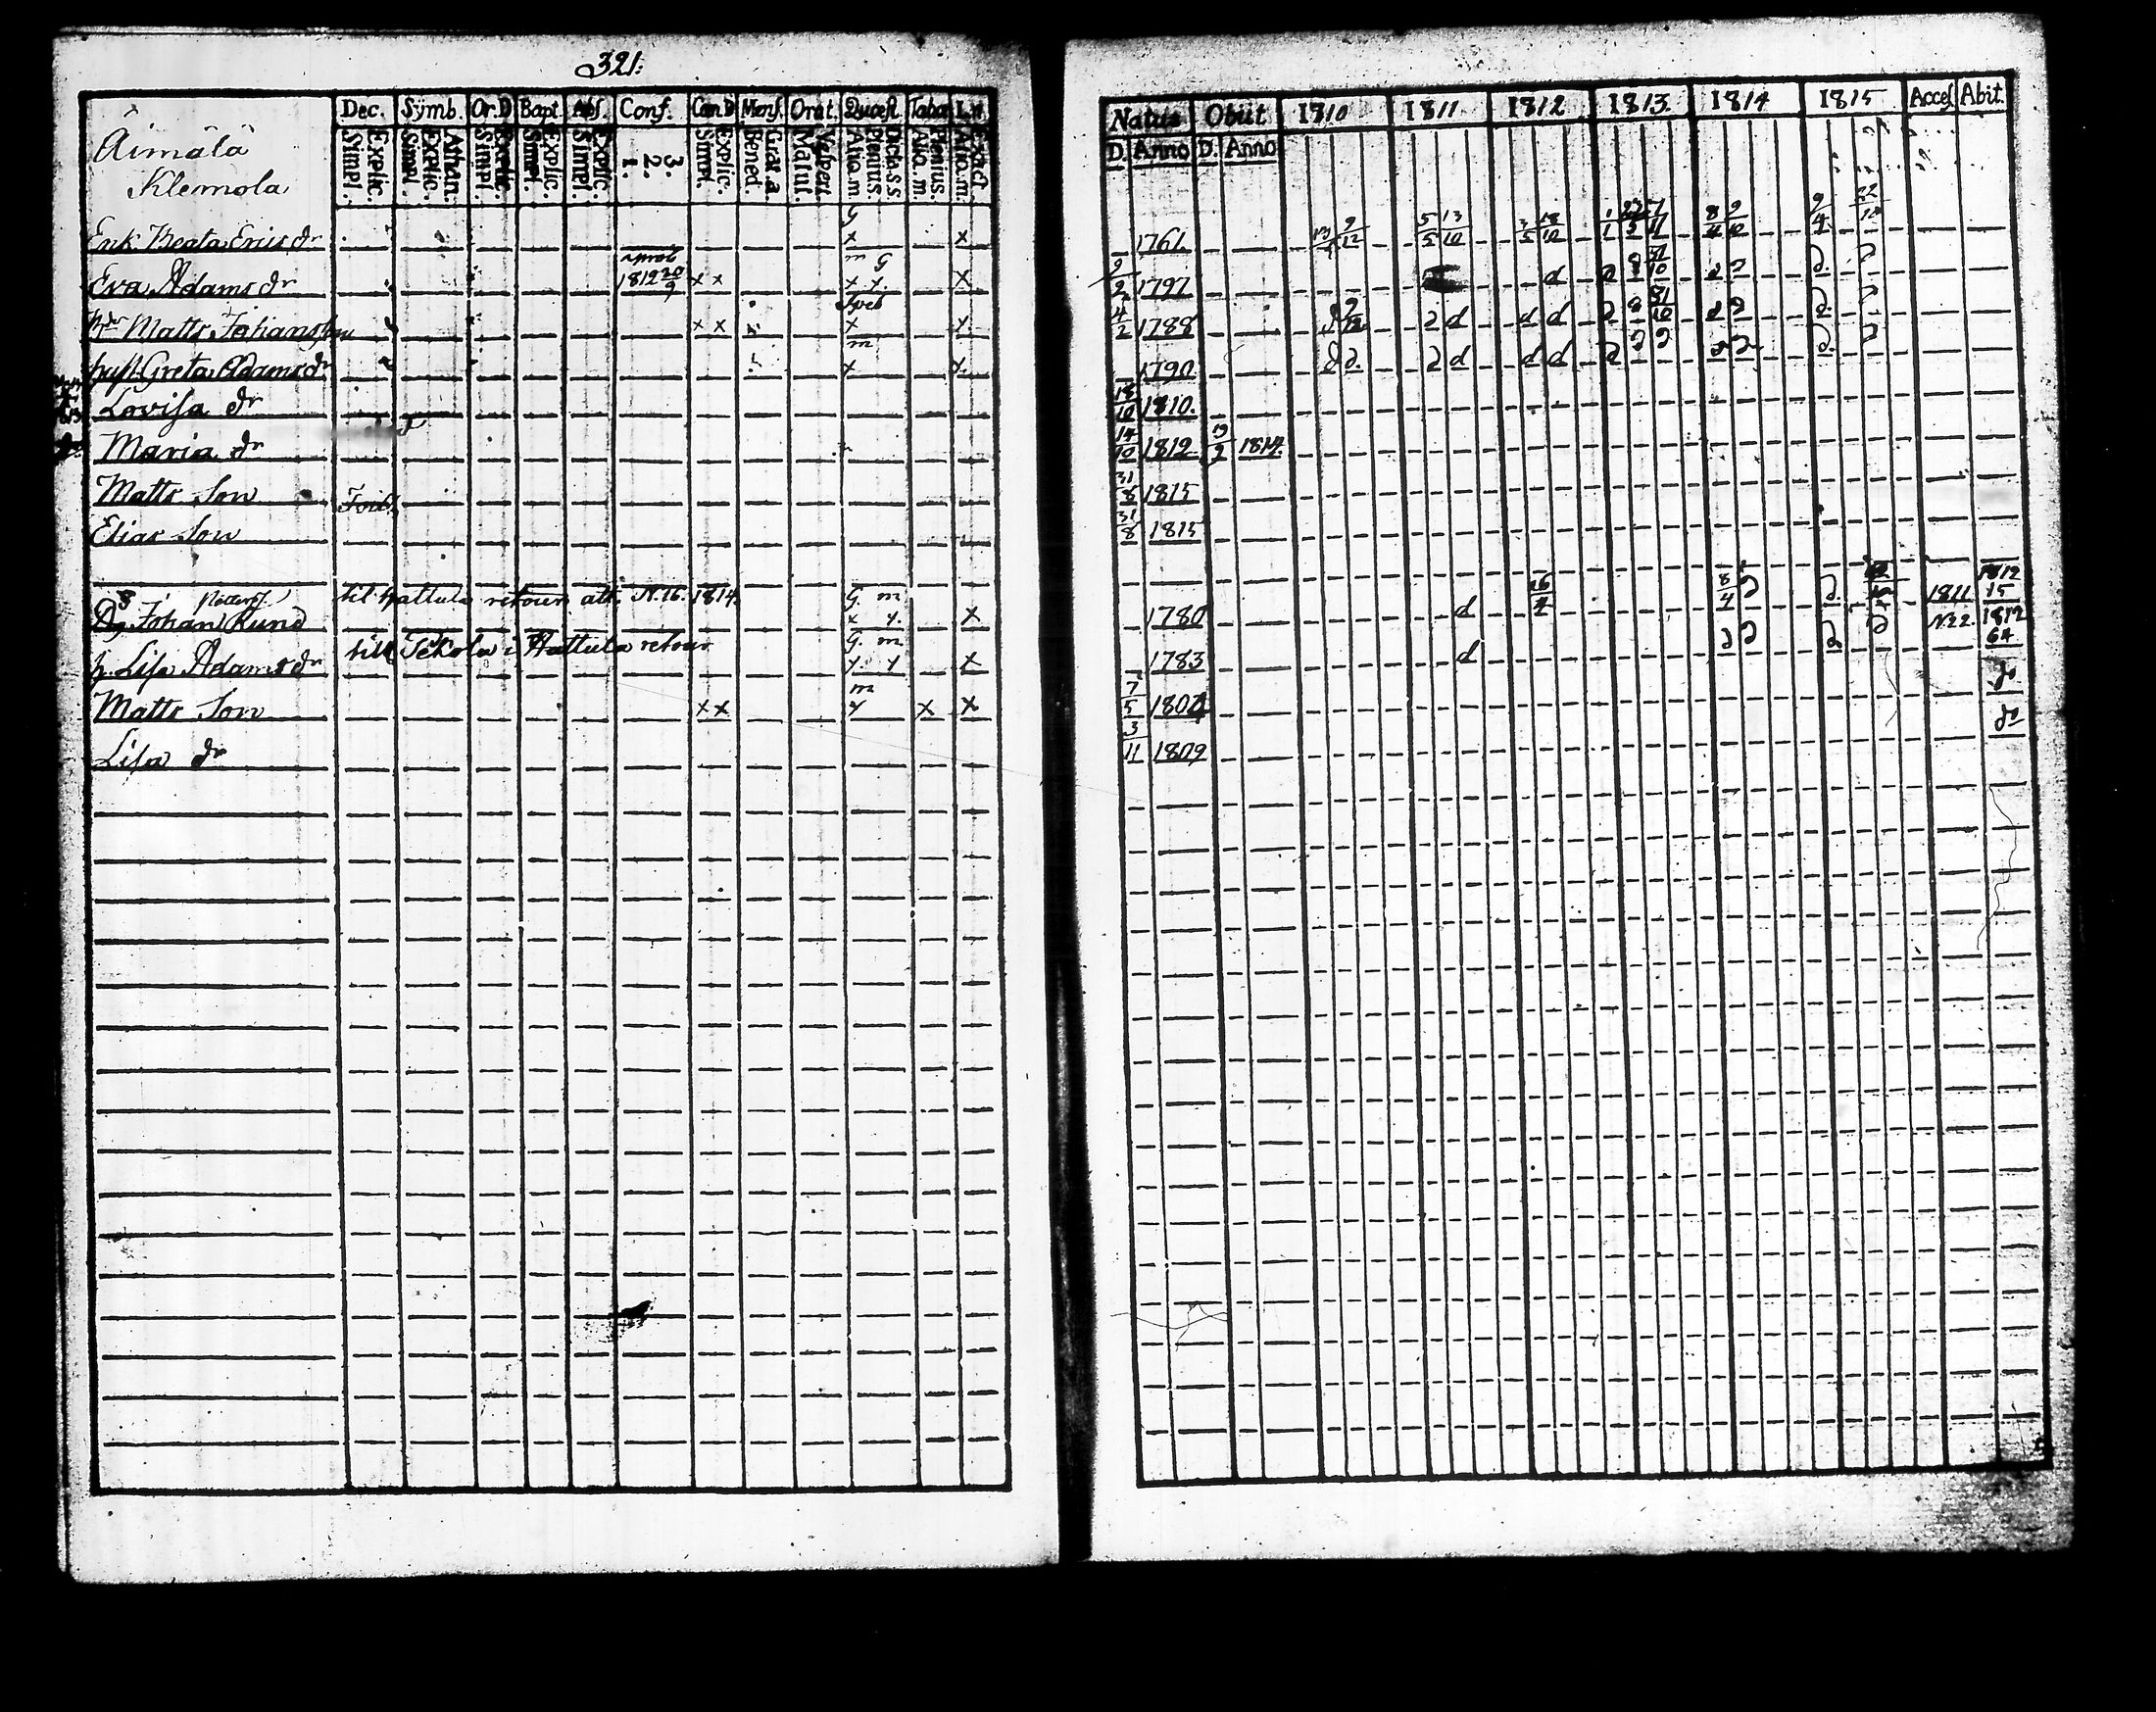 321:
Äimälä
Klemola
Dec. Symb. Or.D Bapt. Abs. Conf. Cæn.D Mens. Orat. Quæst. Tabæ L.n.
Explic. Simpl. Athan. Explic. Simpl. Explic. Simpl. Explic. Simpl. Explic. Simpl. 3. 2. 1. Explic. Simpl. Grat. a. Bened. Vespert. Matut. Dicta s.s. Plenius. Aliq. m. Plenius. Aliq. m. Exact. Aliq. m.
Natus Obiit 1810 1811 1812 1813. 1814 1815 Accef. Abit.
D. Anno D. Anno
Enk. Beata Erics dr G x x 1761 9/12 5/5 13/10 3/5 18/10 1/1 8/4 9/10 9/4 22/10
Eva Adams dr 1812 20/9 x x m G x x. x 9/2 1797 d
Matts Johansson x x x 4/2 1788 2 d d d
hust. Greta Adams dr m x x 1790 d d. 2 d d d
Lovisa dr 18/10 1810.
Maria dr 14/10 1812 19/9 1814.
Matts Son 31/8 1815
Elias Son 31/8 1815
til Hattula retour att. N.16. 1814. G. m
Johan Rund x x. x 1780 d 26/4 8/4 1811 N.22. 1812 15
till Tekola i Hattula retour G. m
h. Lisa Adams dr x x x 1783 d 1812 64
Matts Son x x m x x x 7/5 1804 do
Lisa dr 3/11 1809 do